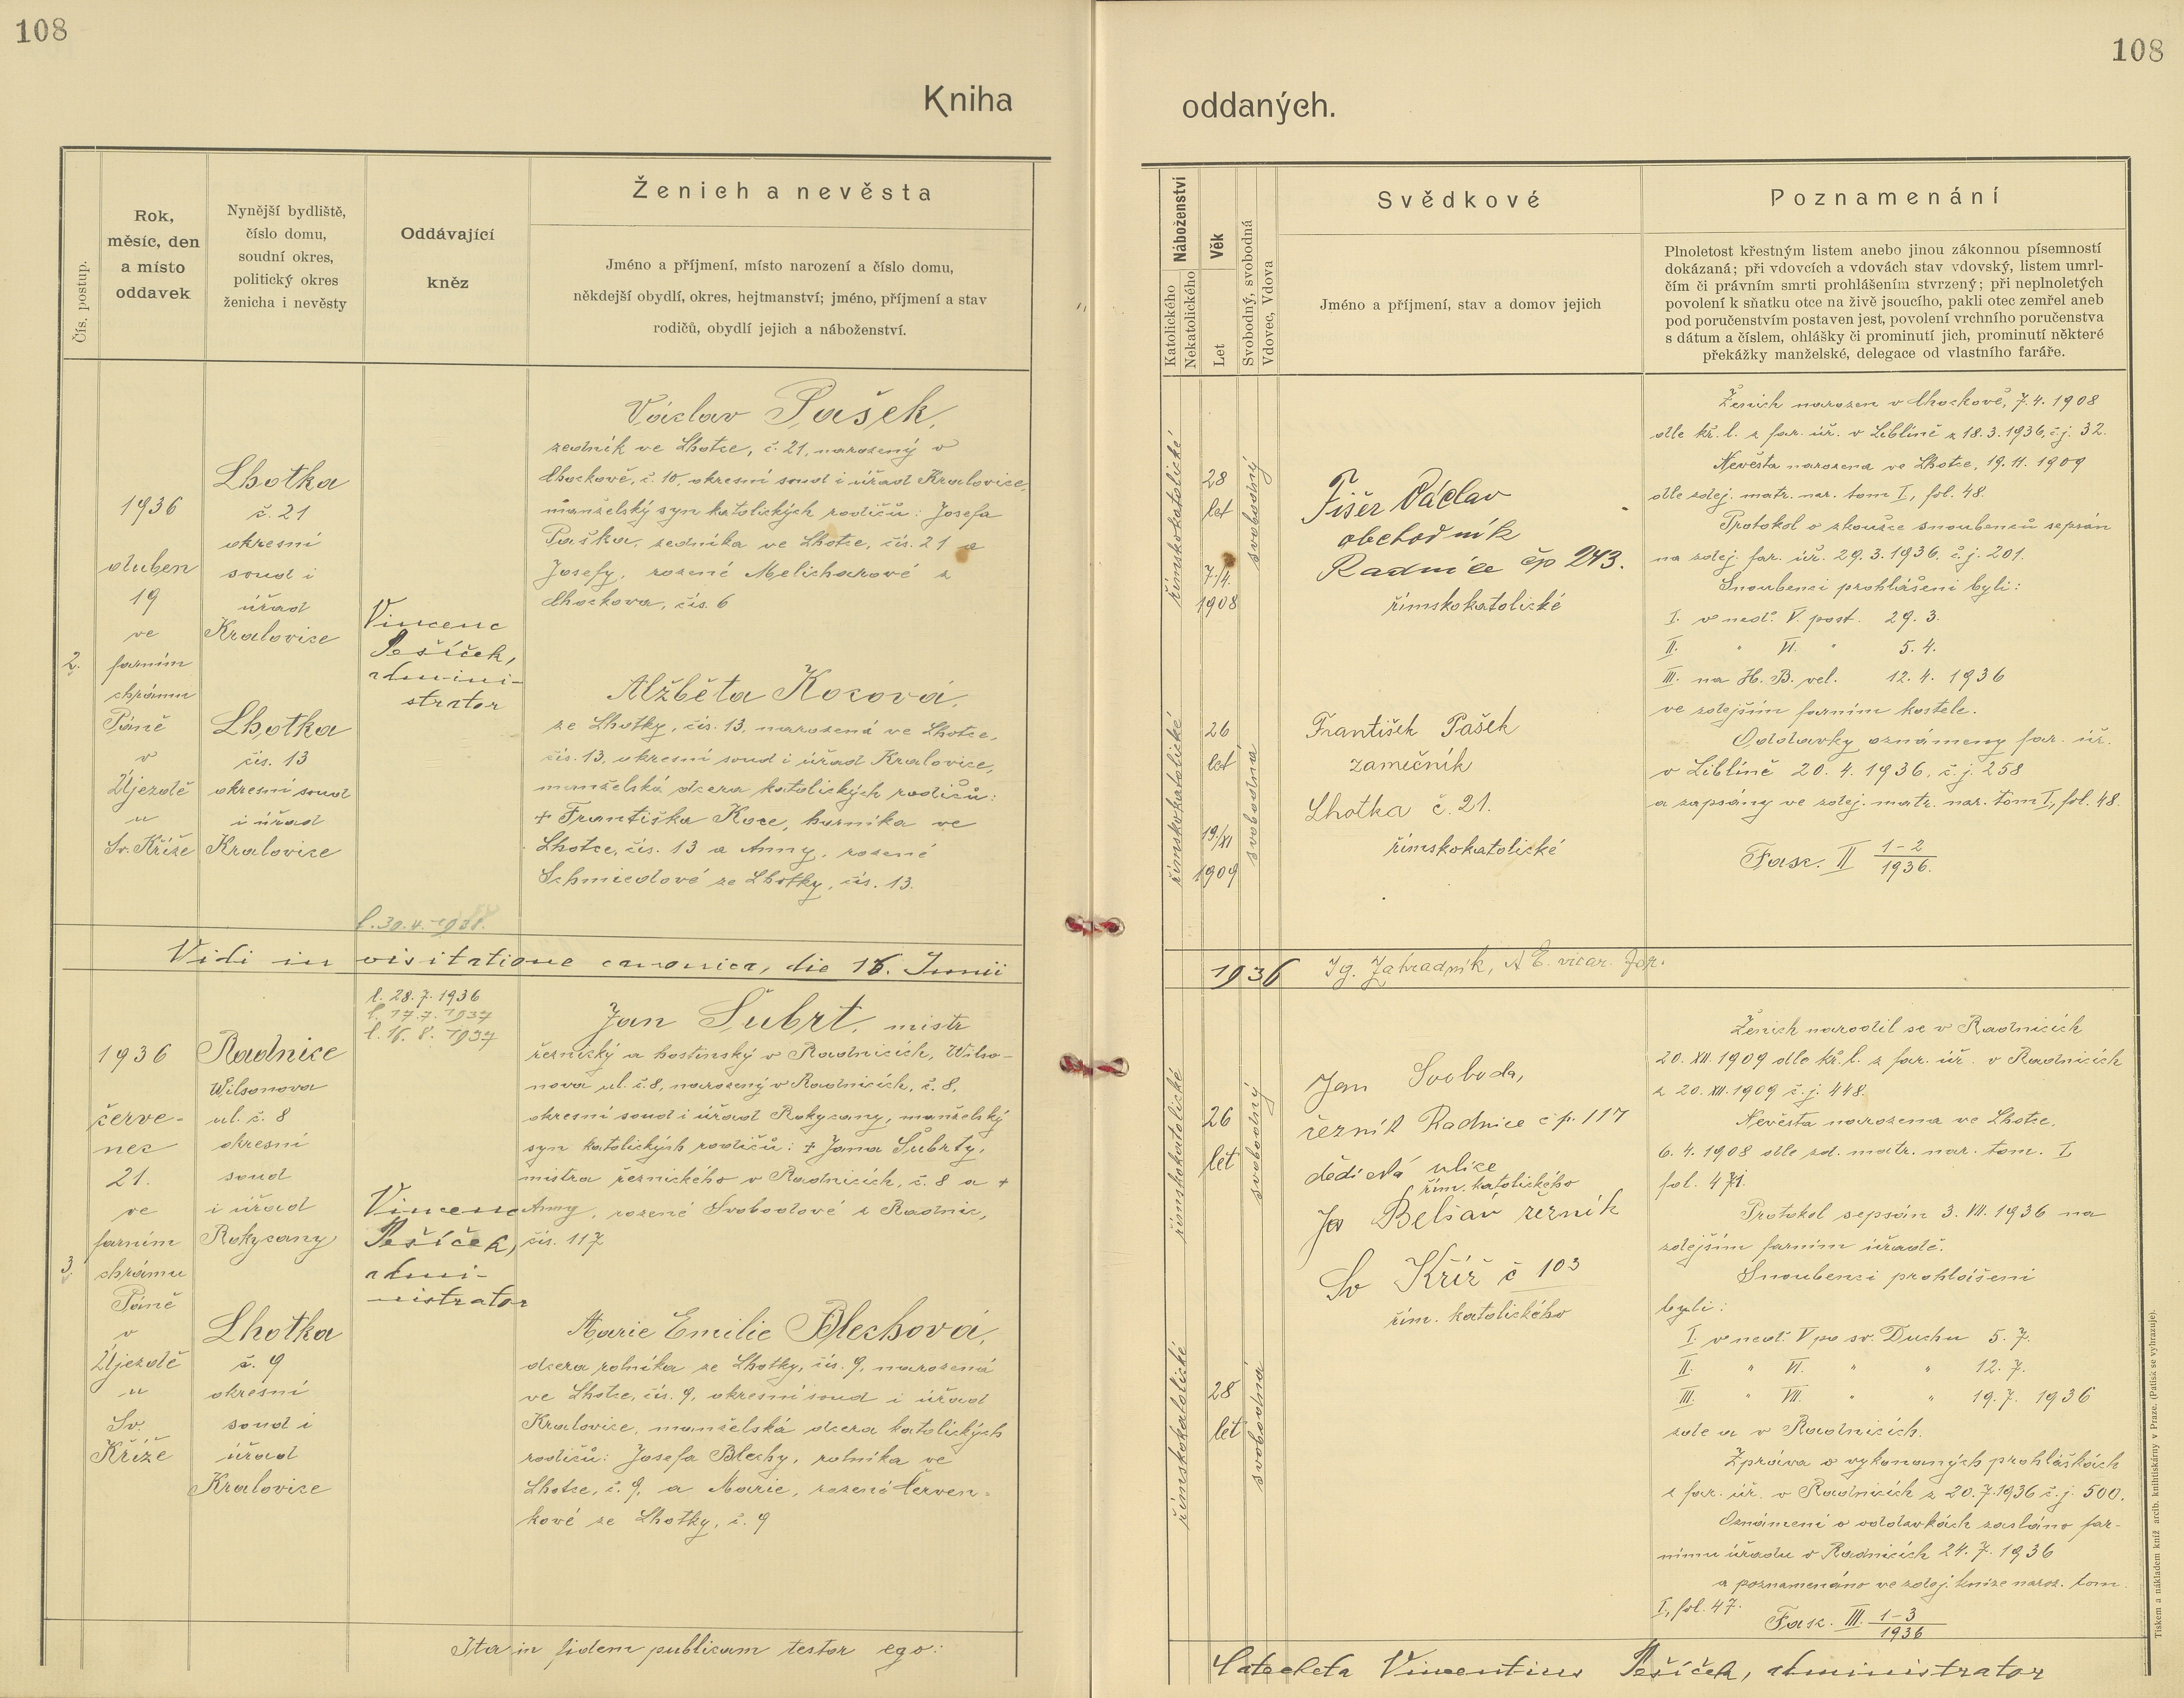 108
108
Kniha
oddaných.
Čís. postup.
Rok,
měsíc, den
a místo
oddavek
Nynější bydliště,
číslo domu,
soudní okres,
politický okres
ženicha i nevěsty
Oddávající
kněz
Ženich a nevěsta
Jméno a příjmení, místo narození a číslo domu,
někdejší obydlí, okres, hejtmanství; jméno, příjmení a stav
rodičů, obydlí jejich a náboženství.
Náboženství
Katolického
Nekatolického
Věk
Let
Svobodný, svobodná
Vdovec, Vdova
Svědkové
Jméno a příjmení, stav a domov jejich
Poznamenání
Plnoletost křestným listem anebo jinou zákonnou písemností
dokázaná; při vdovcích a vdovách stav vdovský, listem umrl-
čím či právním smrti prohlášením stvrzený; při neplnoletých
povolení k sňatku otce na živě jsoucího, pakli otec zemřel aneb
pod poručenstvím postaven jest, povolení vrchního poručenstva
s dátum a číslem, ohlášky či prominutí jich, prominutí některé
překážky manželské, delegace od vlastního faráře.
2.
1936
duben
19
ve
farním
chrámu
Páně
v
Újezdě
u
Sv. Kříže
Lhotka
č. 21
okresní
soud i
úřad
Kralovice
Lhotka
čís. 13
okresní soud
i úřad
Kralovice
Vincenc
Pešíček,
admini-
strator
Václav Pašek,
zedník ve Lhotce, č. 21, narozený v
Chockově, č. 10, okresní soud i úřad Kralovice,
manželský syn katolických rodičů: Josefa
Paška, zedníka ve Lhotce, čís. 21 a
Josefy, rozené Melicharové z
Chockova, čís. 6
Alžběta Kocová,
ze Lhotky, čís. 13, narozená ve Lhotce,
čís. 13, okresní soud i úřad Kralovice,
manželská dcera katolických rodičů:
+ Františka Koce, horníka ve
Lhotce, čís. 13 a Anny, rozené
Schmiedové ze Lhotky, čís. 13.
římskokatolické
28
let
7./4.
1908
svobodný
římskokatolické
26
let
19./XI
1909
svobodná
Fišer Václav
obchodník
Radnice čp 243.
římskokatolické
František Pašek
zámečník
Lhotka č. 21.
římskokatolické
Ženich narozen v Chockově, 7. 4. 1908
dle kř. l. z far. úř. v Liblíně z 18. 3. 1936, č. j. 32.
Nevěsta narozena ve Lhotce, 19. 11. 1909
dle zdej. matr. nar. tom I, fol. 48.
Protokol o zkoušce snoubenců sepsán
na zdej. far. úř. 29. 3. 1936. č. j. 201.
Snoubenci prohlášeni byli:
I. v neď. V. post. 29. 3.
II. " VI. " 5. 4.
III. na H. B. vel. 12. 4. 1936
ve zdejším farním kostele.
Oddavky oznámeny far. úř.
v Liblíně 20. 4. 1936, č. j. 258
a zapsány ve zdej. matr. nar. tom I, fol. 48.
Fasc. II 1-2
1936.
Vidi in visitatione canonica, die 18. Junii
1936 Ig. Zahradník, A. E. vicar. for.
l. 28. 7. 1936
l. 17. 7. 1937
l. 16. 8. 1937
3.
1936
červe-
nec
21.
ve
farním
chrámu
Páně
v
Újezdě
u
Sv.
Kříže
Radnice
Wilsonova
ul. č. 8
okresní
soud
i úřad
Rokycany
Lhotka
č. 9
okresní
soud i
úřad
Kralovice
Vincenc
Pešíček,
admi-
nistrator
Jan Šubrt, mistr
řeznický a hostinský v Radnicích, Wilso-
nova ul. č. 8, narozený v Radnicích, č. 8,
okresní soud i úřad Rokycany, manželský
syn katolických rodičů: + Jana Šubrty,
mistra řeznického v Radnicích, č. 8 a +
Anny, rozené Svobodové z Radnic,
čís. 117
Marie Emilie Blechová,
dcera rolníka ze Lhotky, čís. 9, narozená
ve Lhotce, čís. 9, okresní soud i úřad
Kralovice, manželská dcera katolických
rodičů: Josefa Blechy, rolníka ve
Lhotce, č. 9, a Marie, rozené Červen-
kové ze Lhotky, č. 9
římskokatolické
26
let
svobodný
římskokatolické
28
let
svobodná
Jan Svoboda,
řezník Radnice čp. 117
ulice
řím. katolického
řezník
Sv Kříž č 103
řím. katolického
Ženich narodil se v Radnicích
20. XII. 1909 dle kř. l. z far. úř. v Radnicích
z 20. XII. 1909 č. j. 448.
Nevěsta narozena ve Lhotce,
6. 4. 1908 dle zd. matr. nar. tom. I,
fol. 471.
Protokol sepsán 3. VII. 1936 na
zdejším farním úřadě.
Snoubenci prohlášeni
byli:
I. v neď. V po sv. Duchu 5. 7.
II. " VI. " " 12. 7.
III. " VII. " " 19. 7. 1936
zde a v Radnicích.
Zpráva o vykonaných prohláškách
z far. úř. v Radnicích z 20. 7. 1936 č. j. 500.
Oznámení o oddavkách zasláno far-
nímu úřadu v Radnicích 24. 7. 1936
a poznamenáno ve zdej. knize naroz. tom.
I, fol. 47.
Fasc. III. 1-3
1936
Ita in fidem publicam testor ego:
Catecheta Vincentius Pešíček, administrator
Tiskem a nákladem kníž. arcib. knihtiskárny v Praze. (Patisk se vyhrazuje).